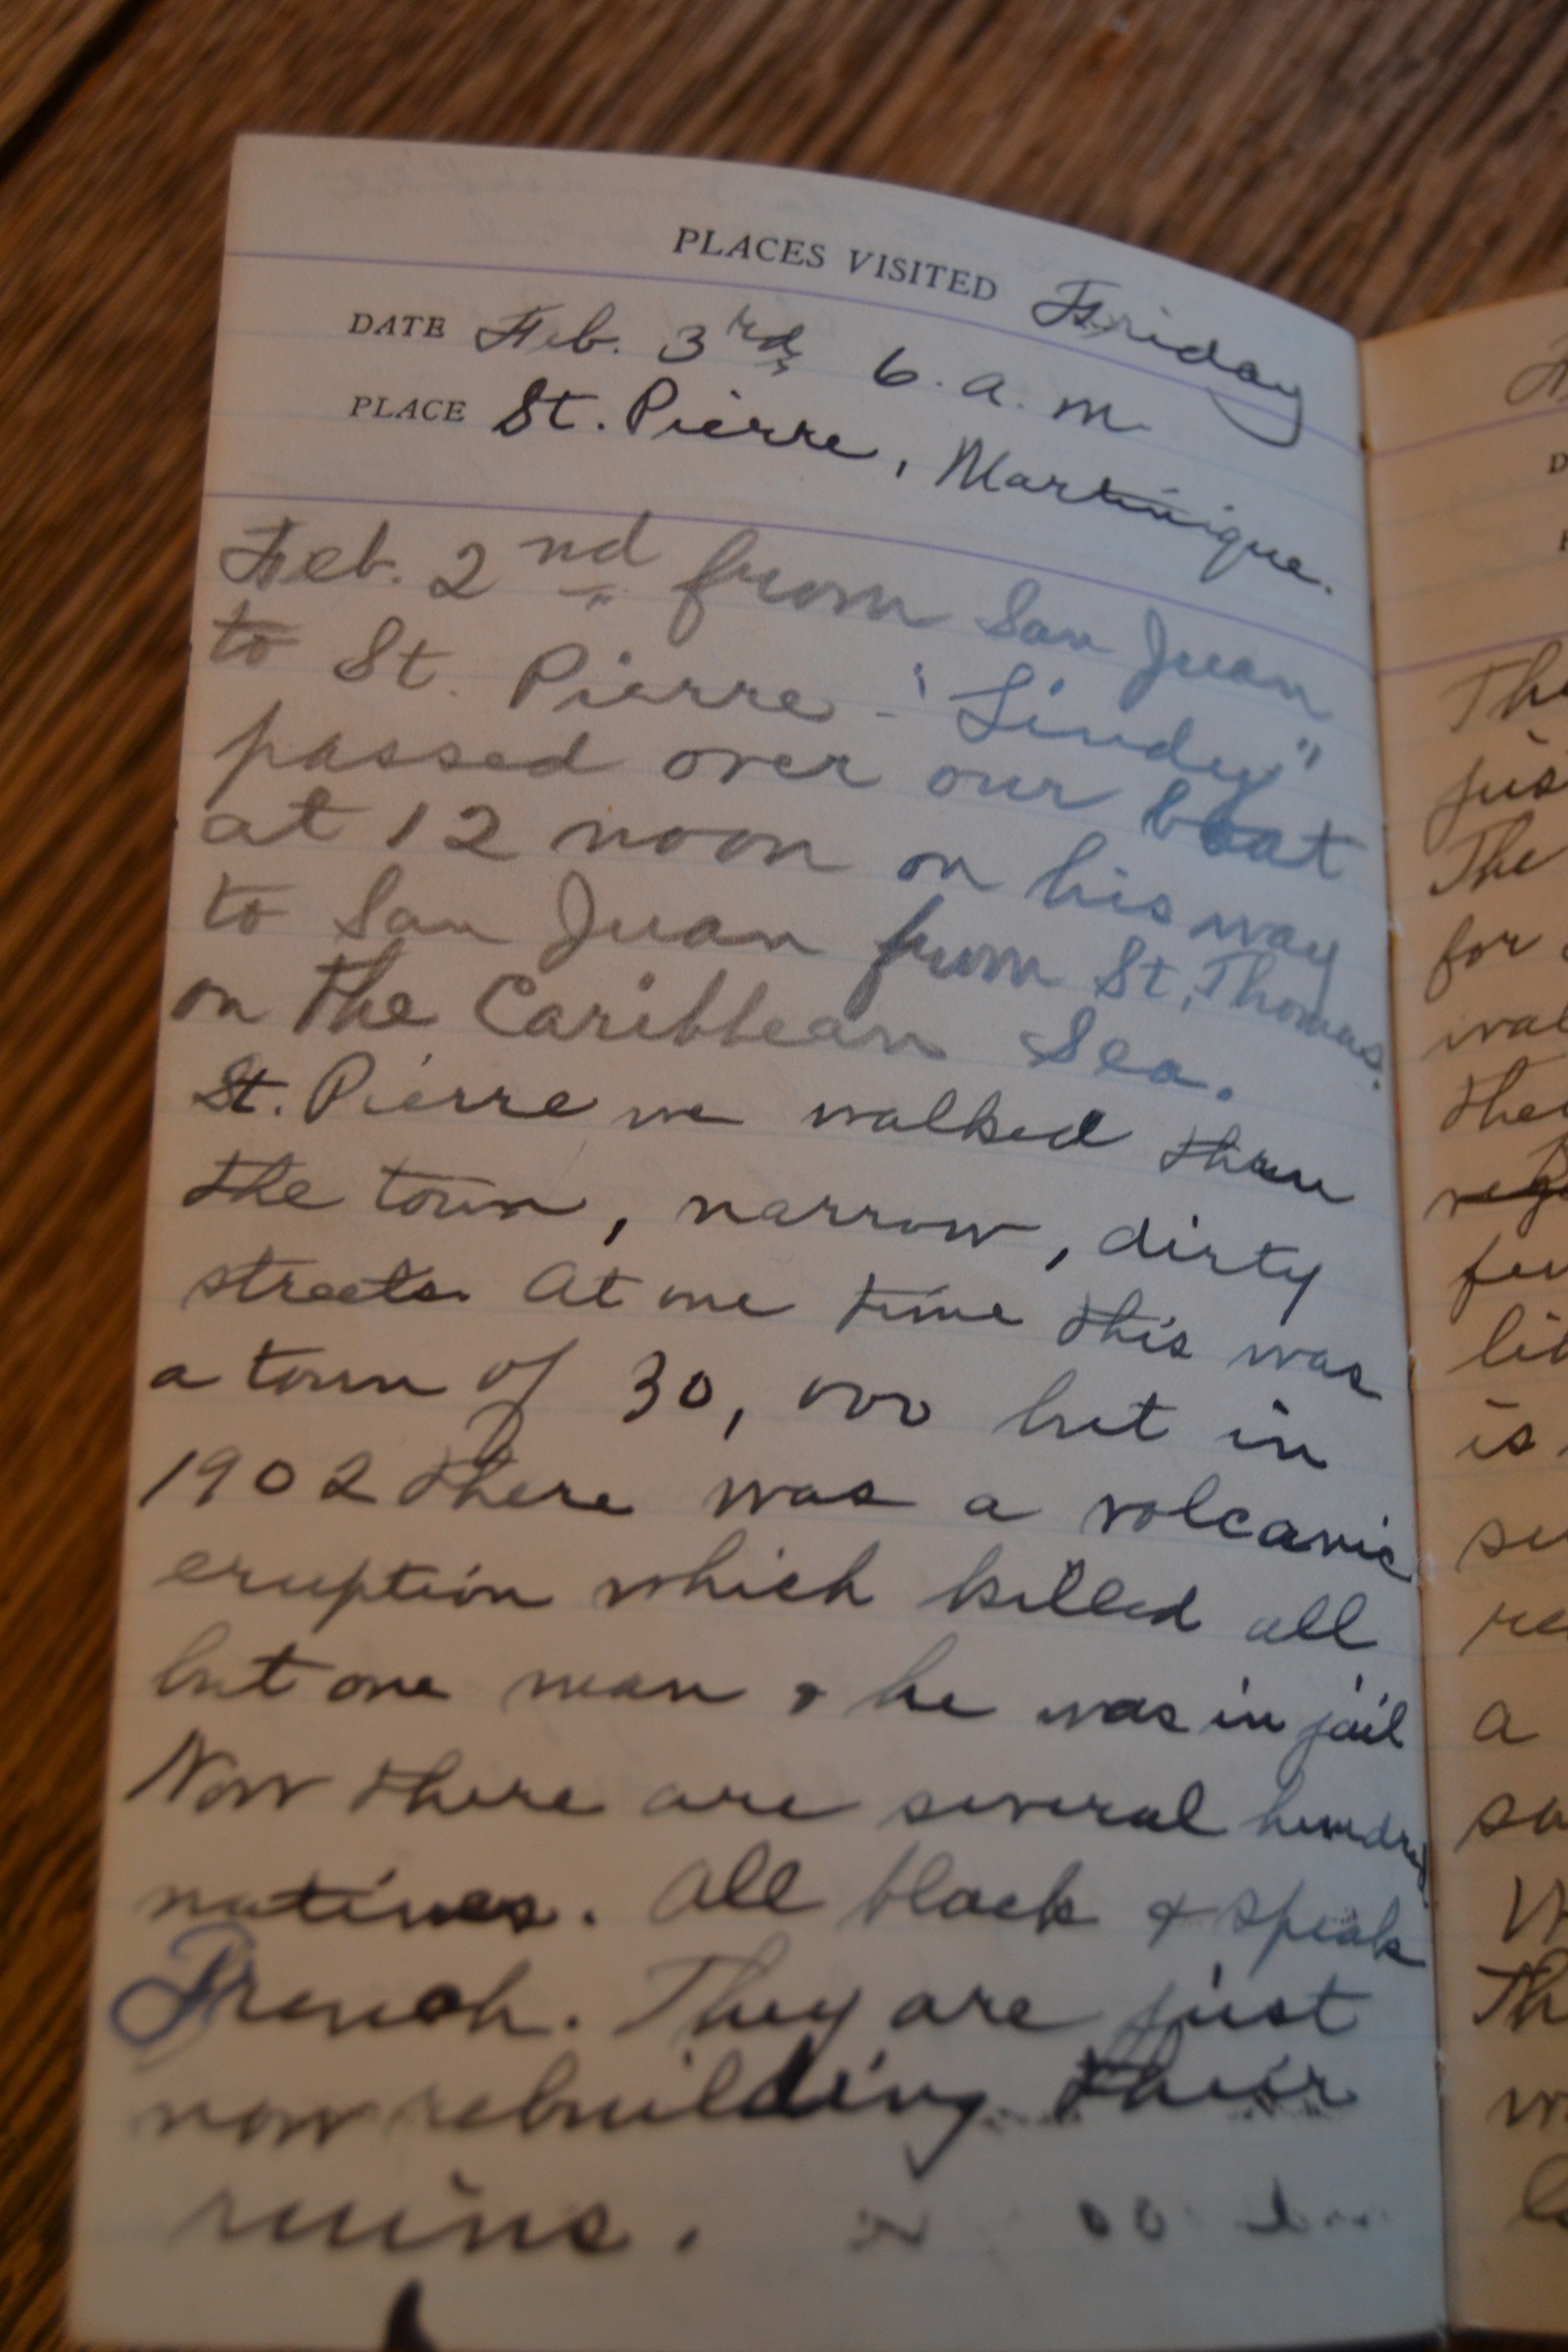 PLACES VISITED Friday
DATE Feb. 3rd 6. a. m.
PLACE St. Pierre, Martinique.
Feb. 2nd from San Juan
to St. Pierre - "Lindy"
passed over our boat
at 12 noon on his way
to San Juan from St. Thomas.
on the Caribbean Sea.
St. Pierre we walked thru
the town, narrow, dirty
streets. At one time this was
a town of 30,000 but in
1902 there was a volcanic
eruption which killed all
but one man & he was in jail
Now there are several hundred
natives. All black & speak
French. They are just
now rebuilding their
ruins.
Th
jus
The
for
wal
the
fu
li
is
su
re
a
sa
W
Th
w